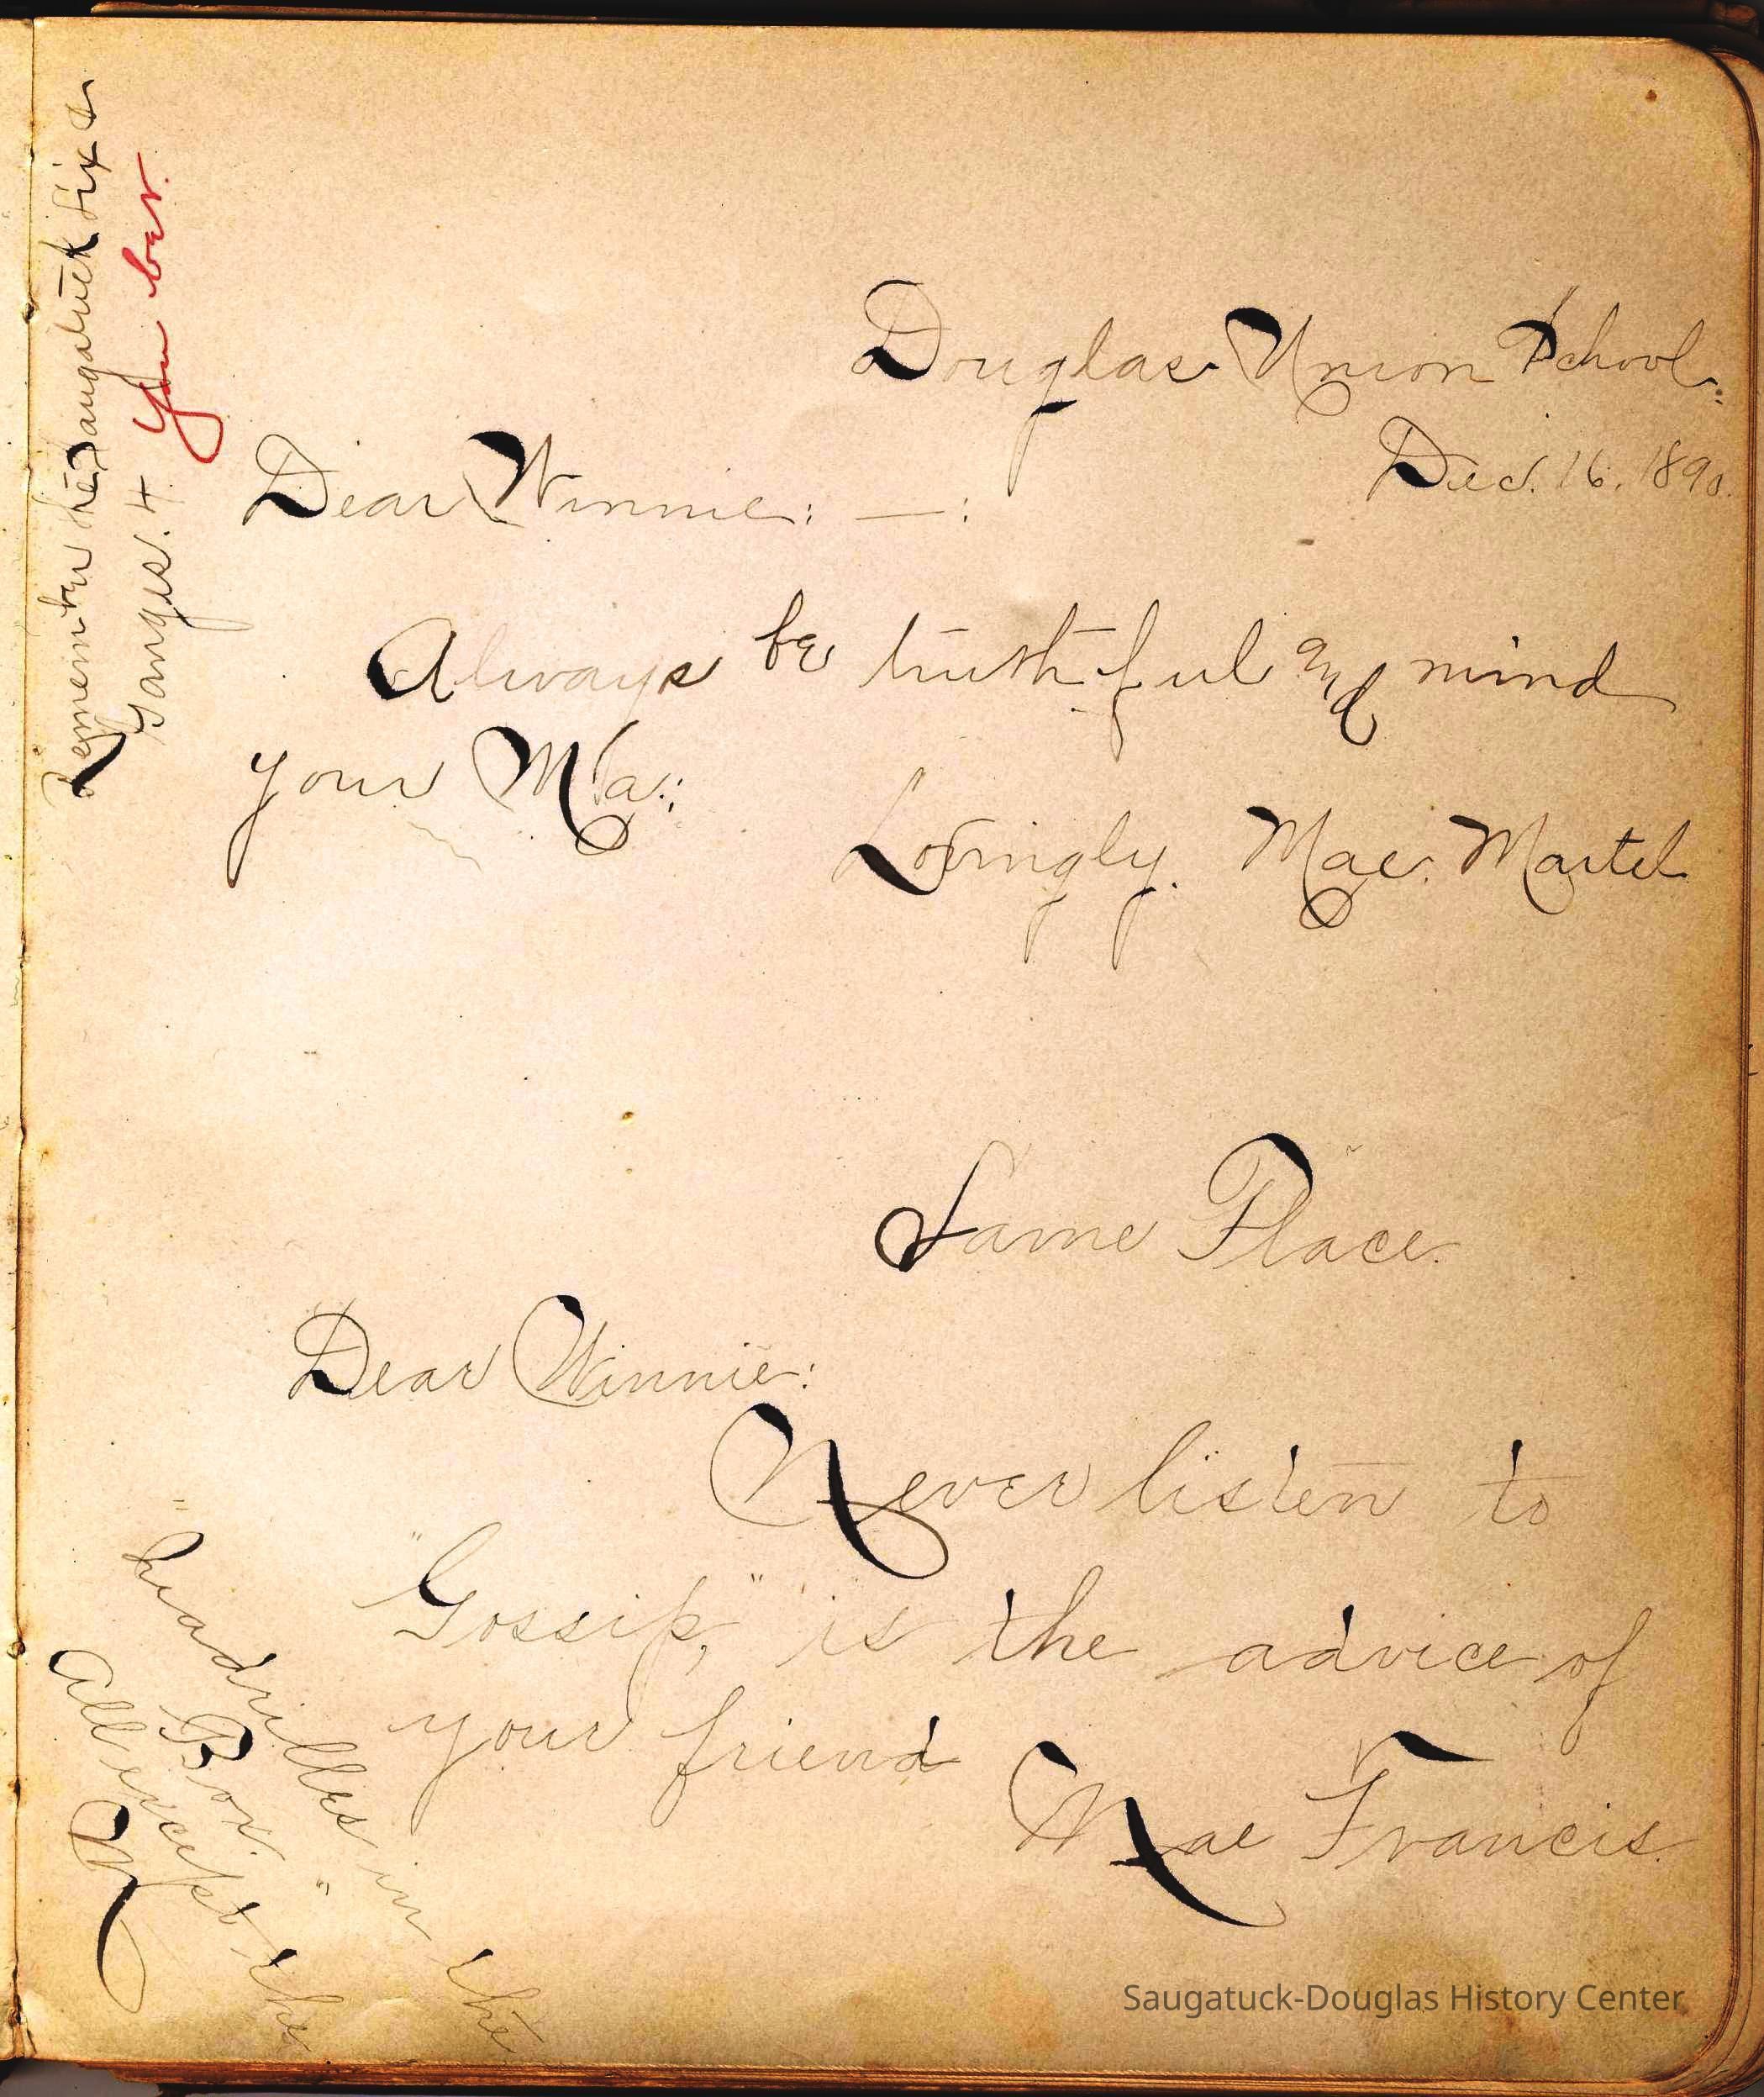 Douglas Union School.
Dec. 16, 1890.
Dear Winnie: — :
Always be truthful and mind
your Ma.
Lovingly. Mae. Martel
Remember the Saugatuck Six &
Ganges. 4 You bet.
Same Place.
Dear Winnie:
Never listen to
"Gossip," is the advice of
your friend
Mae Francis.
All except the
Box."
in the
Saugatuck-Douglas History Center